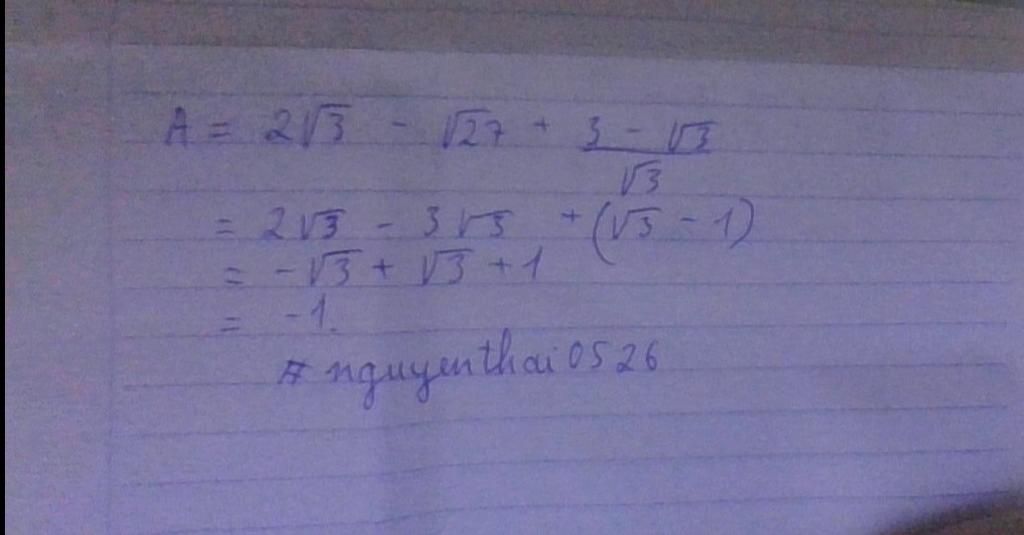 A = 2√3 - √27 + (3 - √3)/√3
= 2√3 - 3√3 + (√3 - 1)
= -√3 + √3 + 1
= -1.
# nguyenthai0526